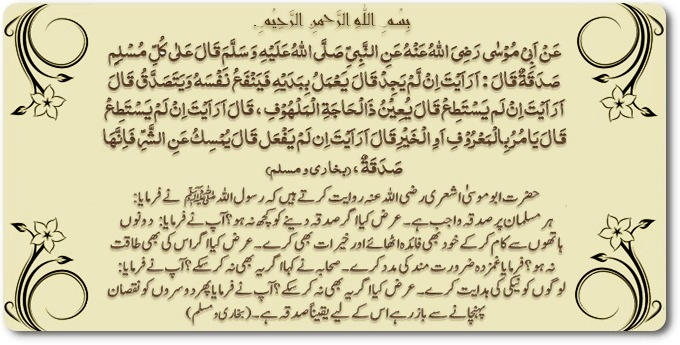 بِسْمِ اللهِ الرَّحْمٰنِ الرَّحِيْمِ
عَنْ اَبِيْ مُوْسٰى رَضِىَ اللهُ عَنْهُ عَنِ النَّبِيِّ صَلَّى اللهُ عَلَيْهِ وَسَلَّمَ قَالَ عَلٰى كُلِّ مُسْلِمٍ
صَدَقَةٌ قَالَ : اَرَاَيْتَ اِنْ لَّمْ يَجِدْ قَالَ يَعْمَلُ بِيَدَيْهِ فَيَنْفَعُ نَفْسَهُ وَيَتَصَدَّقُ قَالَ
اَرَاَيْتَ اِنْ لَّمْ يَسْتَطِعْ قَالَ يُعِيْنُ ذَا الْحَاجَةِ الْمَلْهُوْفِ ، قَالَ اَرَاَيْتَ اِنْ لَّمْ يَسْتَطِعْ
قَالَ يَاْمُرُ بِالْمَعْرُوْفِ اَوِ الْخَيْرِ قَالَ اَرَاَيْتَ اِنْ لَّمْ يَفْعَلْ قَالَ يُمْسِكُ عَنِ الشَّرِّ فَاِنَّهَا
صَدَقَةٌ ، (بخاری و مسلم)
حضرت ابو موسیٰ اشعری رضی اللہ عنہ روایت کرتے ہیں کہ رسول اللہ ﷺ نے فرمایا:
ہر مسلمان پر صدقہ واجب ہے۔ عرض کیا اگر صدقہ دینے کو کچھ نہ ہو؟ آپ نے فرمایا: دونوں
ہاتھوں سے کام کر کے خود بھی فائدہ اٹھائے اور خیرات بھی کرے۔ عرض کیا اگر اس کی بھی طاقت
نہ ہو؟ فرمایا غمزدہ ضرورت مند کی مدد کرے۔ صحابہ نے کہا اگر یہ بھی نہ کر سکے؟ آپ نے فرمایا:
لوگوں کو نیکی کی ہدایت کرے۔ عرض کیا اگر یہ بھی نہ کر سکے؟ آپ نے فرمایا پھر دوسروں کو نقصان
پہنچانے سے باز رہے اس کے لیے یقیناً صدقہ ہے۔ (بخاری و مسلم)